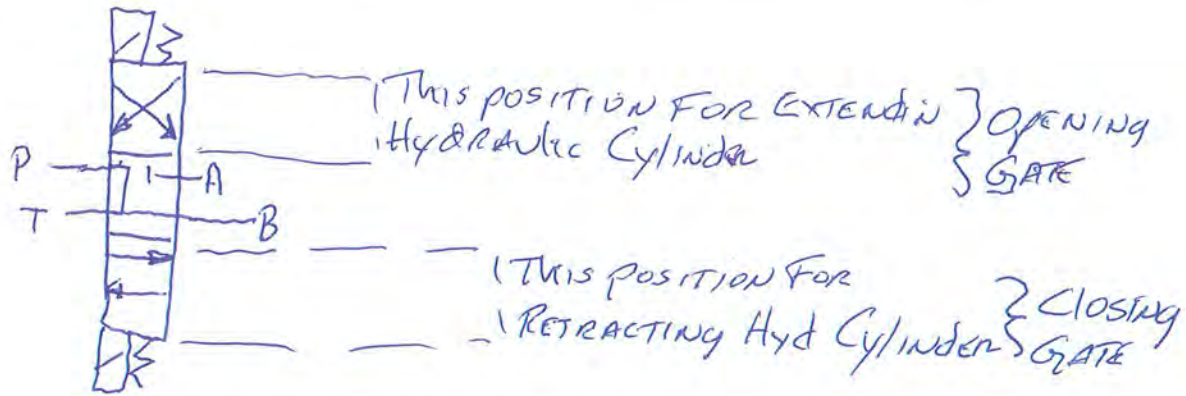 This position for Extendin } Opening
Hydraulic Cylinder } Gate
P
A
T
B
This position for
Retracting Hyd Cylinder } Closing Gate